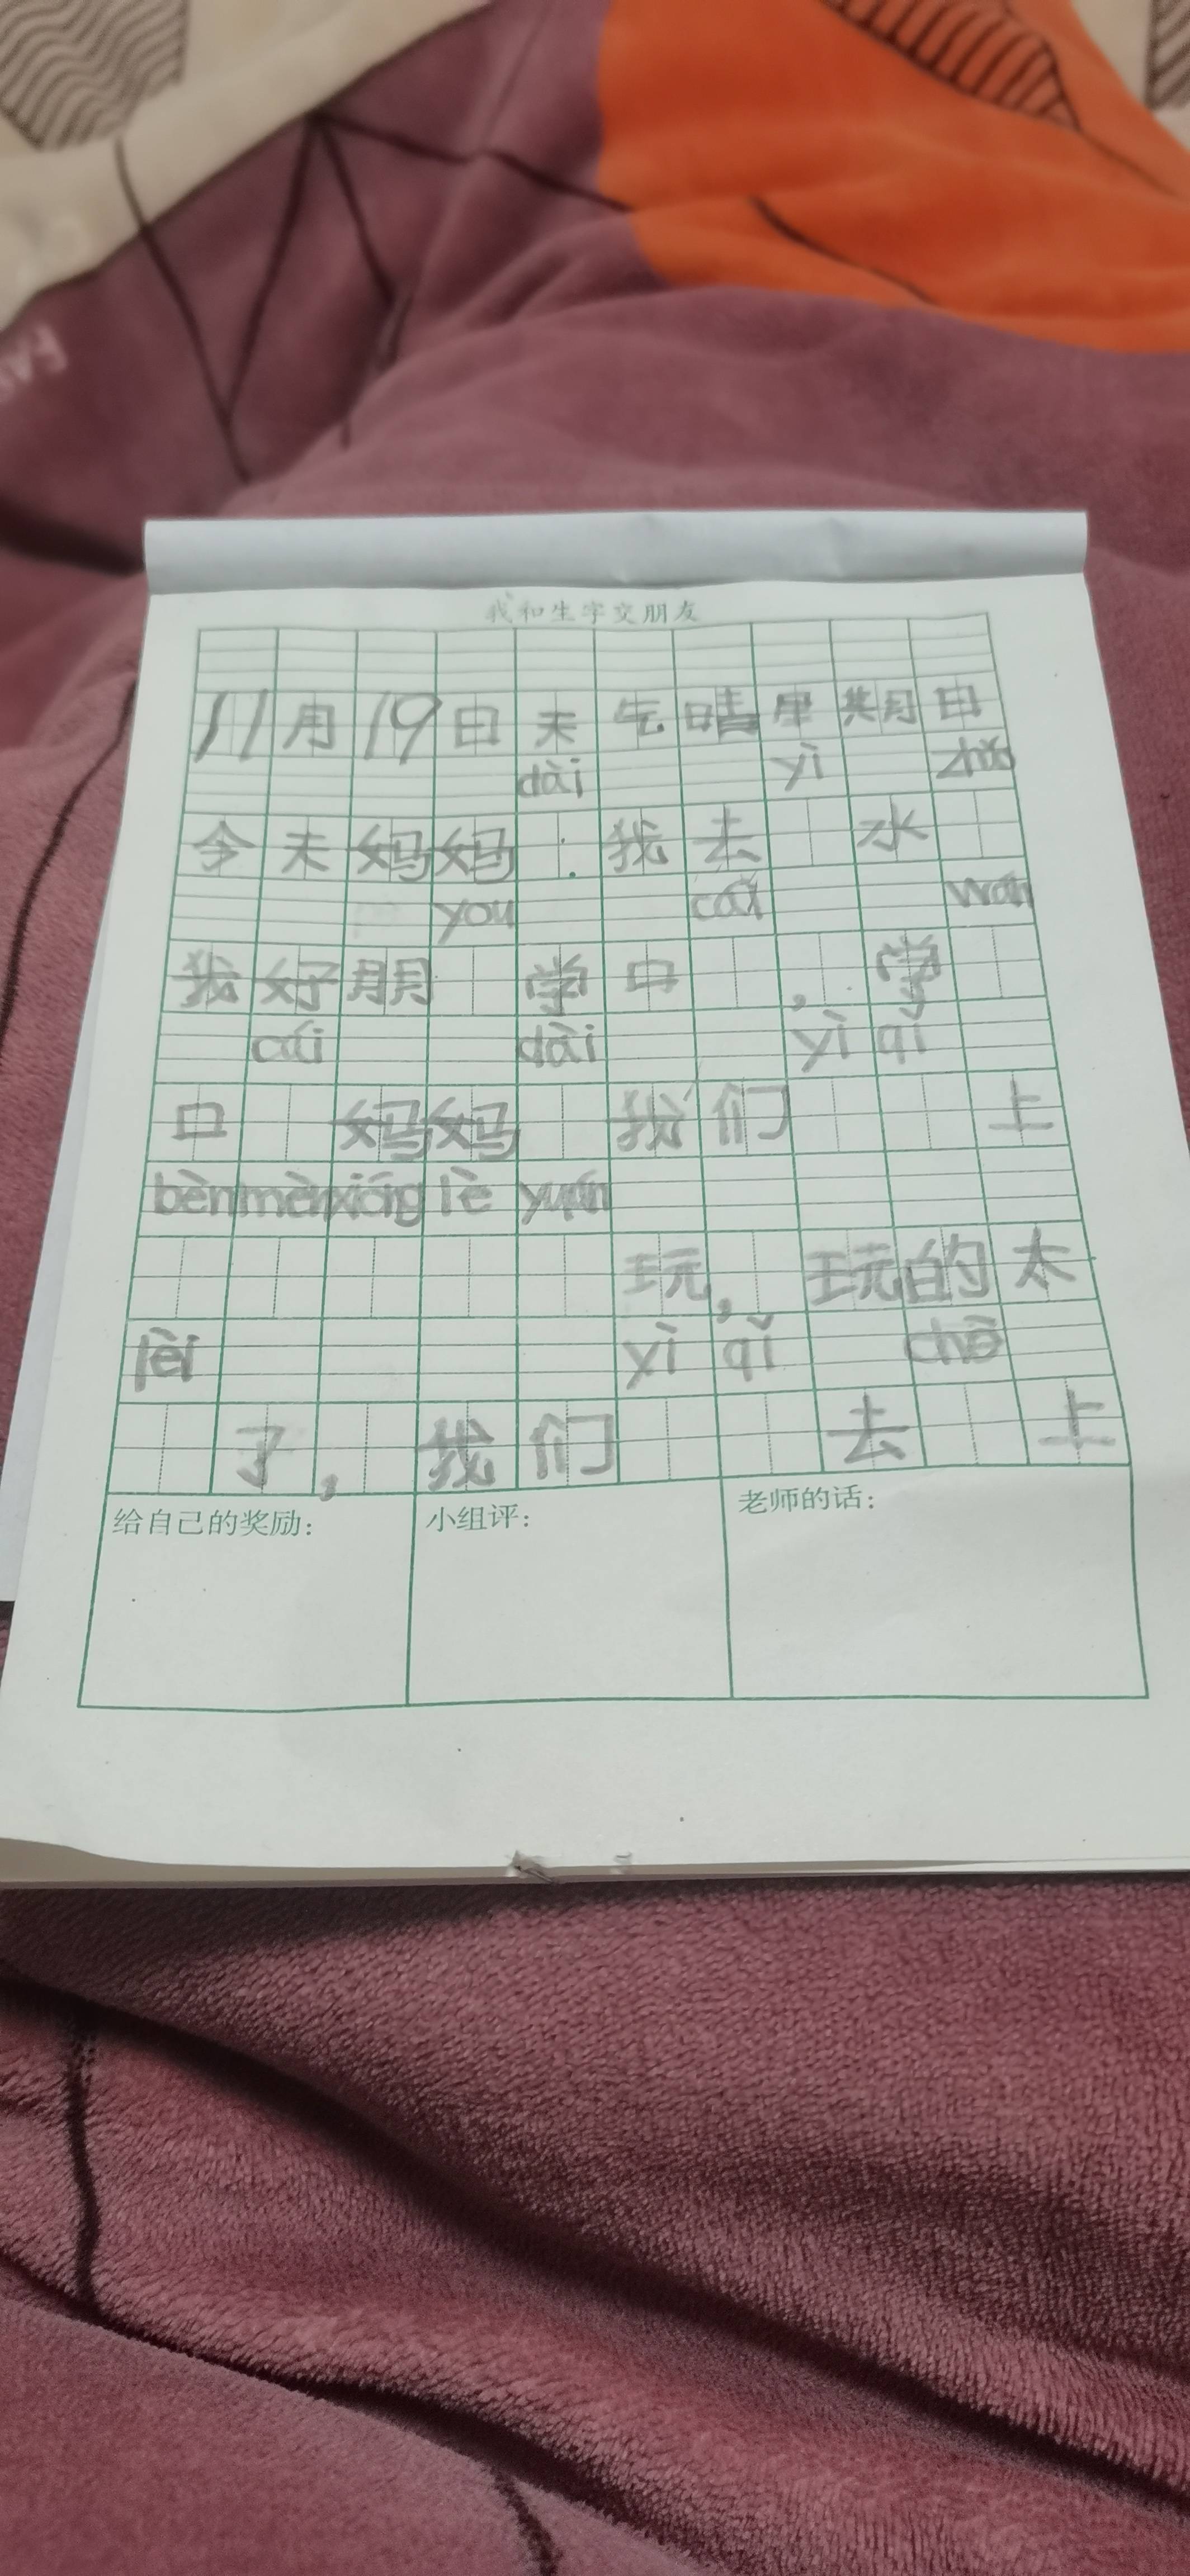 我和生字交朋友
11月19日天气晴星期日
dài yì zhǎo
今天妈妈.我去水
you cǎi wán
我好朋学口,学
cái dài yì qǐ
口妈妈我们上
bènmènxióng lè yuán
玩,玩的太
lèi yì qǐ chē
了,我们去上
给自己的奖励: 小组评: 老师的话: